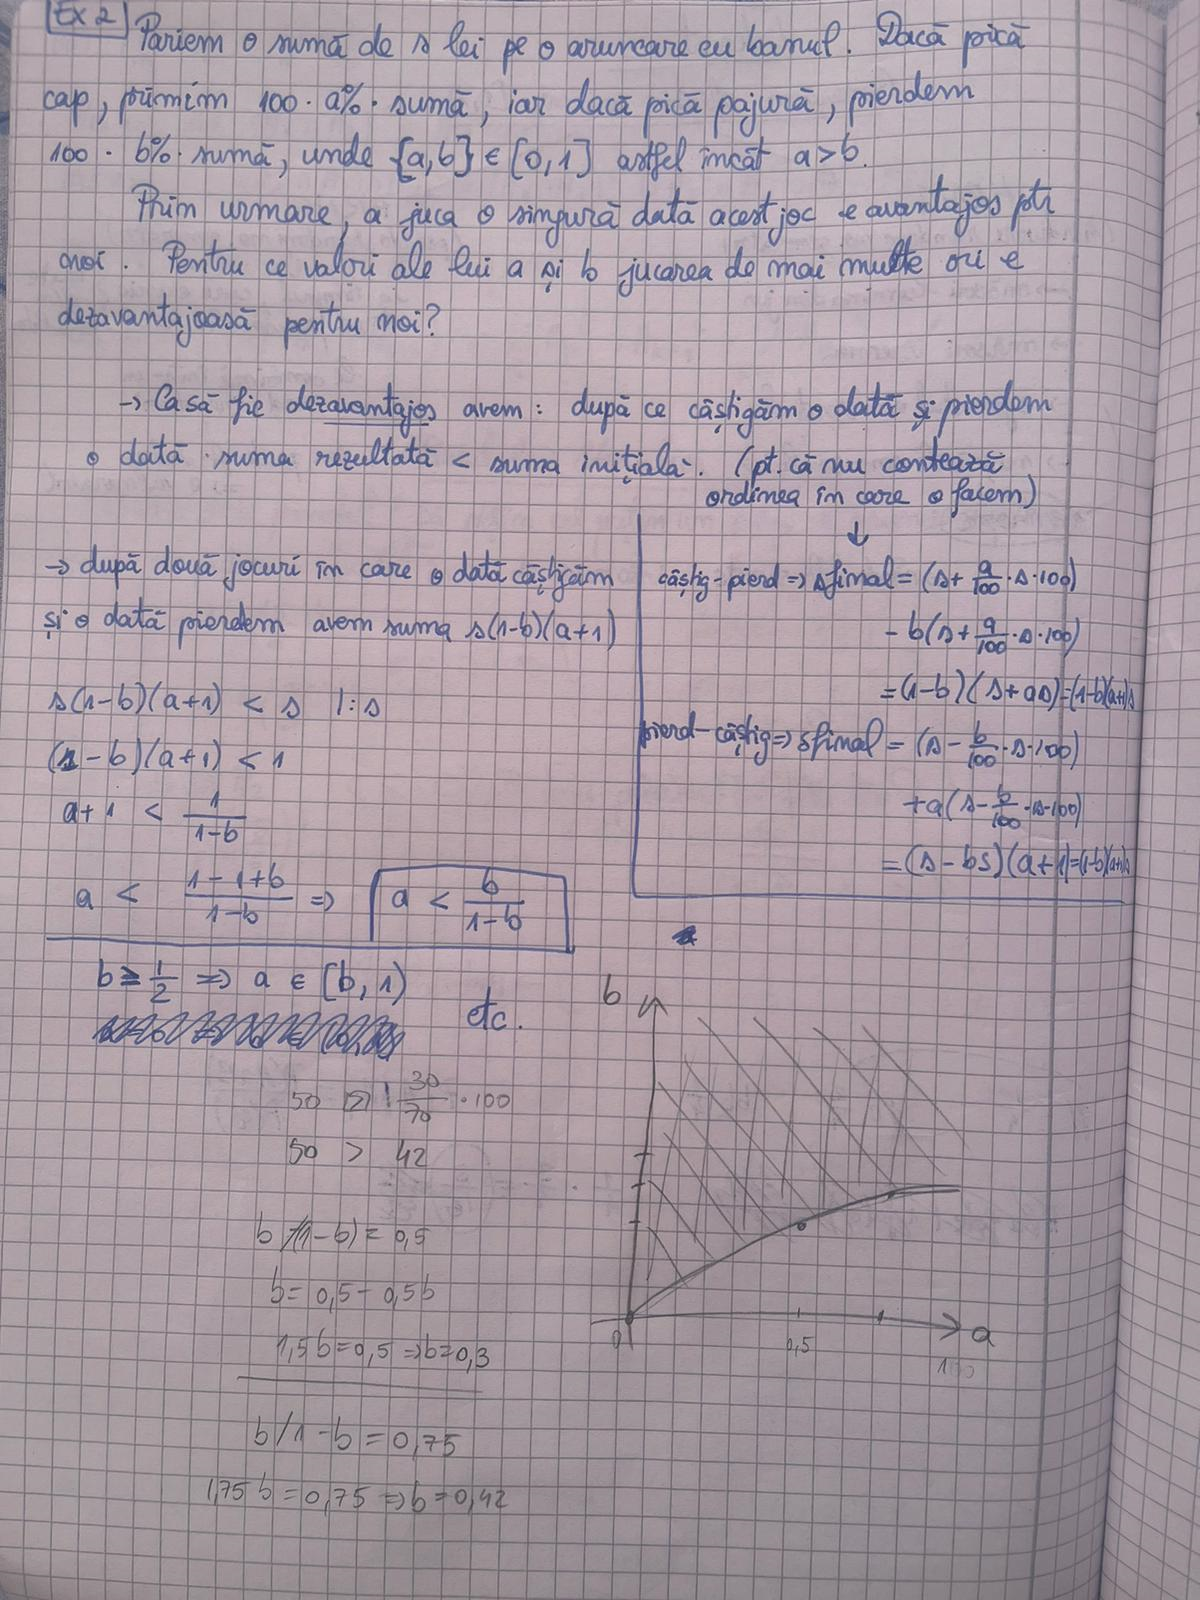 Ex 2
Pariem o sumă de s lei pe o aruncare cu banul. Dacă pică
cap, primim 100 · a% · sumă, iar dacă pică pajură, pierdem
100 · b% · sumă, unde {a,b} ∈ [0,1] astfel încât a>b.
Prin urmare, a juca o singură dată acest joc e avantajos ptr
noi. Pentru ce valori ale lui a și b jucarea de mai multe ori e
dezavantajoasă pentru noi?
→ Ca să fie dezavantajos avem: după ce câștigăm o dată și pierdem
o dată suma rezultată < suma inițială. (pt. că nu contează
ordinea în care o facem)
↓
→ după două jocuri în care o dată câștigăm
și o dată pierdem avem suma s(1-b)(a+1)
s(1-b)(a+1) < s |:s
(1-b)(a+1) < 1
a+1 < 1/(1-b)
a < (1-1+b)/(1-b) => a < b/(1-b)
câștig-pierd => sfinal = (s + a/100 · s · 100)
- b(s + a/100 · s · 100)
= (1-b)(s+as) = (1-b)(a+1)s
pierd-câștig => sfinal = (s - b/100 · s · 100)
+ a(s - b/100 · s · 100)
= (s - bs)(a+1) = (1-b)(a+1)s
b ≥ 1/2 => a ∈ [b, 1)
etc.
50 30/70 · 100
50 > 42
b/(1-b) = 0,5
b = 0,5 - 0,5b
1,5b = 0,5 => b = 0,3
b/1-b = 0,75
1,75b = 0,75 => b = 0,42
b
0
0,5
a